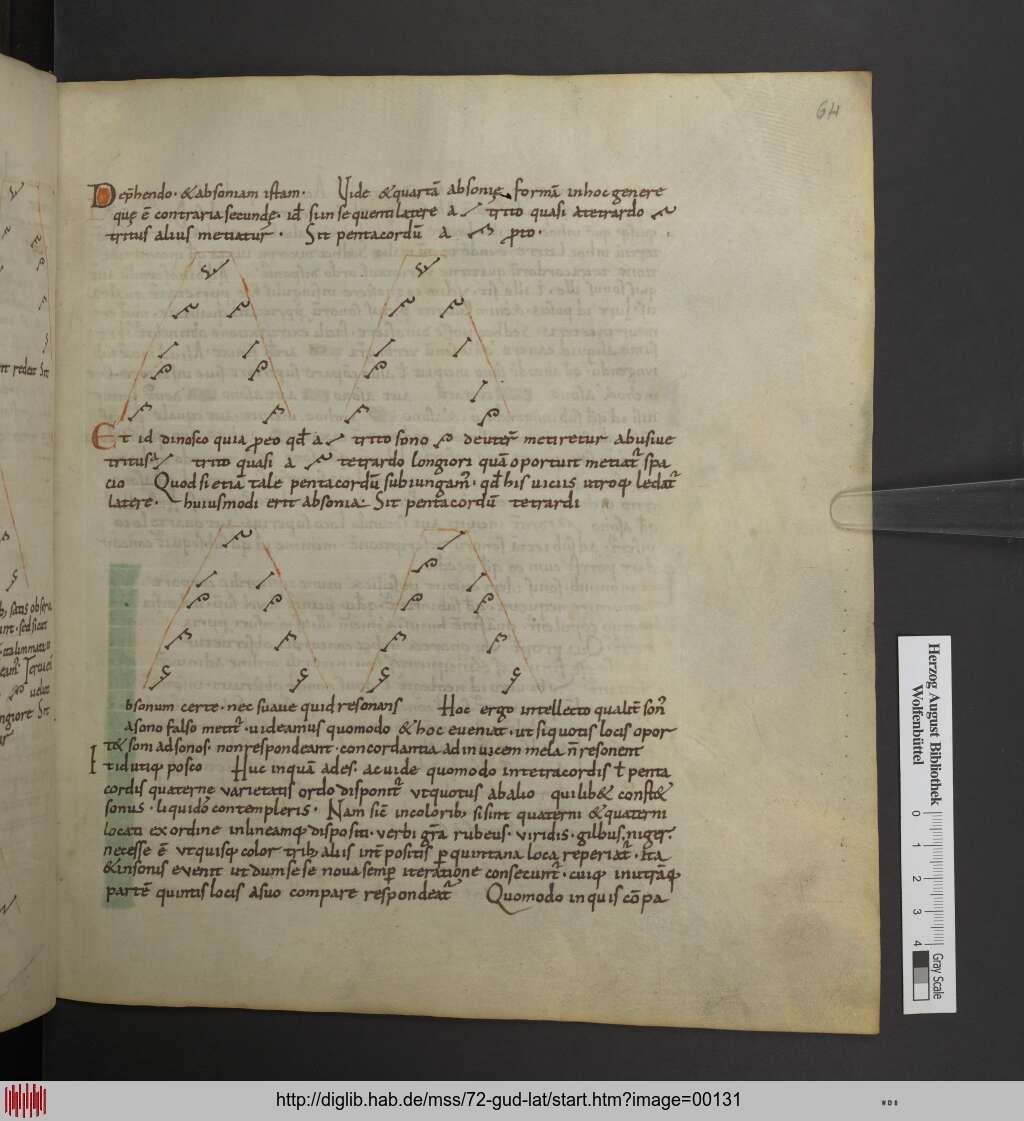 64
Dep̄hendo · & absoniam istam · Vide & quartā absonię formā in hoc genere
quę ē contraria secundę · id̄ si in sequenti latere a trito quasi a tetrardo
tritus alius metiatur · Sit pentacordū a p̄to ·
Et id dinosco quia p eo qd̄ a trito sono deuter̄ metiretur abusiue
tritus a trito quasi a tetrardo longiori quā oportuit metiat̄ spa
cio Quod si etiā tale pentacordū subiungam̄ · qd̄ his uiciis utroq; ledat̄
latere · huiusmodi erit absonia · Sit pentacordū tetrardi
bsonum certe · nec suaue quid resonans Hoc ergo intellecto qualit̄ son̄
a sono falso metit̄ · uideamus quomodo & hoc eueniat · ut si quotis locis opor
t& soni ad sonos · non respondeant · concordantia ad inuicem mela n̄ resonent
I tidutiq; posco Huc inquā ades · ac uide quomodo in tetracordis t̄ penta
cordis quaterne uarietatis ordo disponit̄ ut quotus ab alio quilib& const&
sonus · liquido contempleris · Nam sic̄ in colorib; si sint quaterni & quaterni
locati ex ordine in lineamq; dispositi · uerbi gr̄a rubeus · uiridis · giluus · niger ·
necesse ē ut quisq; color trib; aliis int̄positis p quintana loca reperiat̄ · Ita
& in sonis euenit ut dum sese noua semp iteratione consecunt̄ · cuiq; in utrāq;
partē quintis locis a suo compare respondeat̄ Quomodo inquis cōpa
Herzog August Bibliothek
Wolfenbüttel
0 1 2 3 4
Gray Scale
http://diglib.hab.de/mss/72-gud-lat/start.htm?image=00131